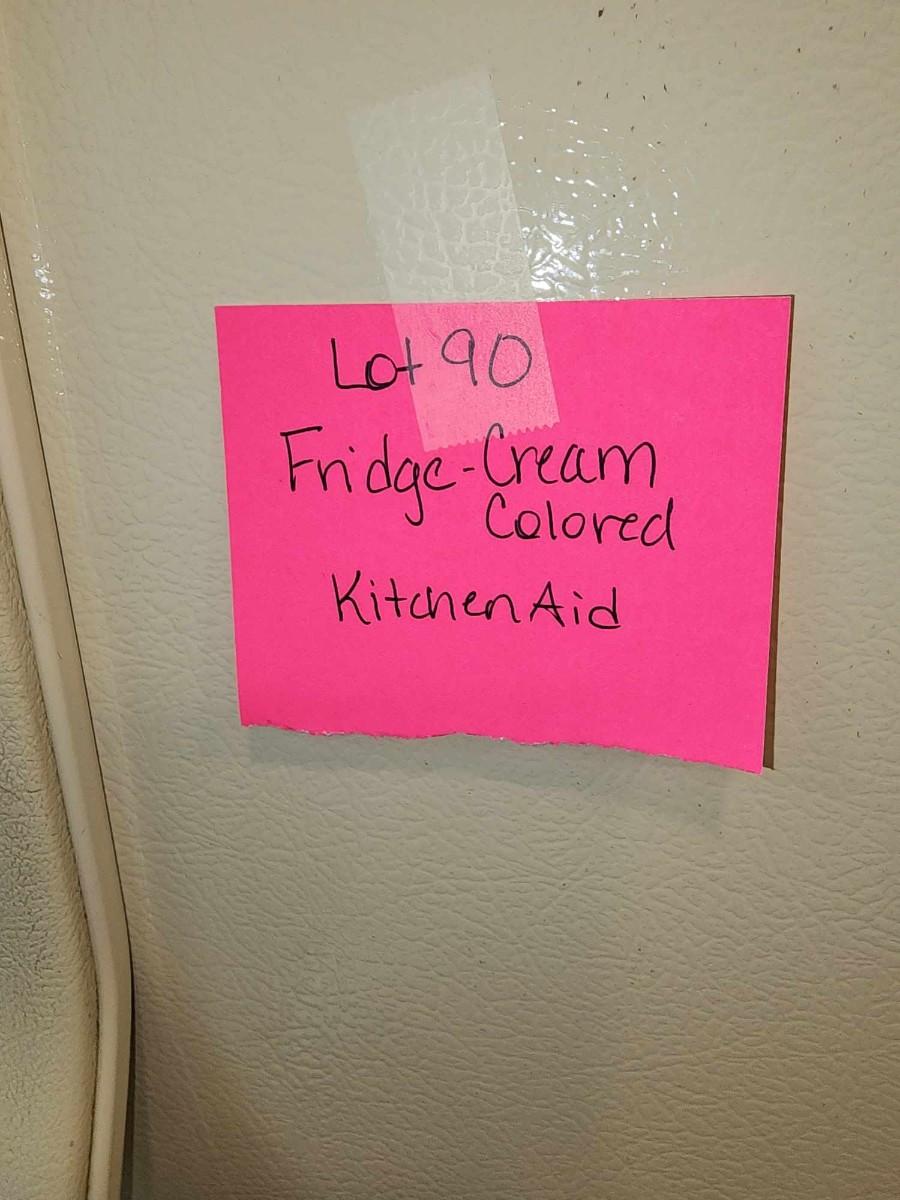 Lot 90
Fridge-Cream
Colored
KitchenAid